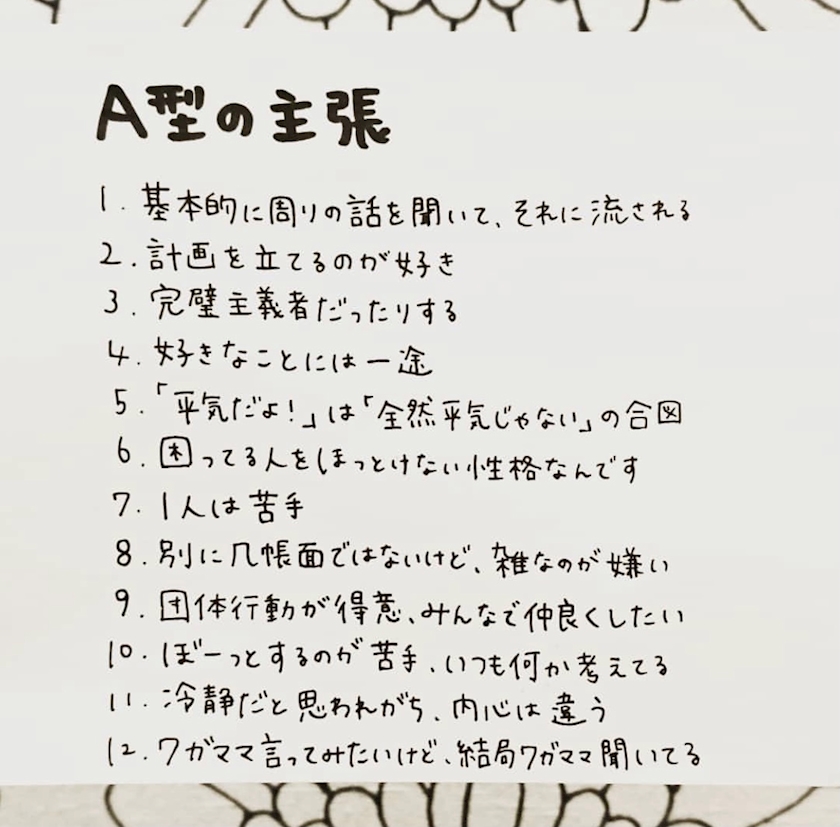 A型の主張
1. 基本的に周りの話を聞いて、それに流される
2. 計画を立てるのが好き
3. 完璧主義者だったりする
4. 好きなことには一途
5.「平気だよ!」は「全然平気じゃない」の合図
6. 困ってる人をほっとけない性格なんです
7. 1人は苦手
8. 別に几帳面ではないけど、雑なのが嫌い
9. 団体行動が得意、みんなで仲良くしたい
10. ぼーっとするのが苦手、いつも何か考えてる
11. 冷静だと思われがち、内心は違う
12. ワガママ言ってみたいけど、結局ワガママ聞いてる